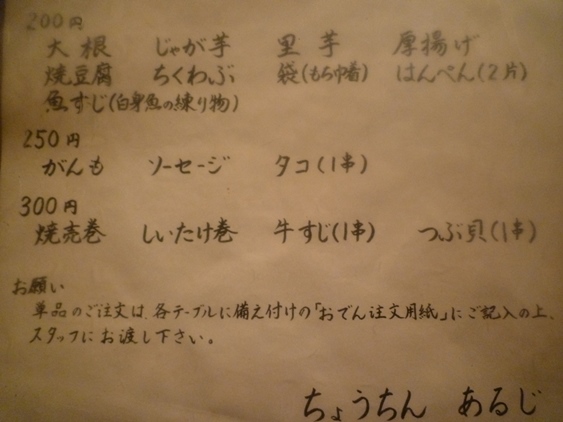 200円
大根 じゃが芋 里芋 厚揚げ
焼豆腐 ちくわぶ 袋(もち巾着) はんぺん(2片)
魚すじ(白身魚の練り物)
250円
がんも ソーセージ タコ(1串)
300円
焼売巻 しいたけ巻 牛すじ(1串) つぶ貝(1串)
お願い
単品のご注文は、各テーブルに備え付けの「おでん注文用紙」にご記入の上、
スタッフにお渡し下さい。
ちょうちん あるじ